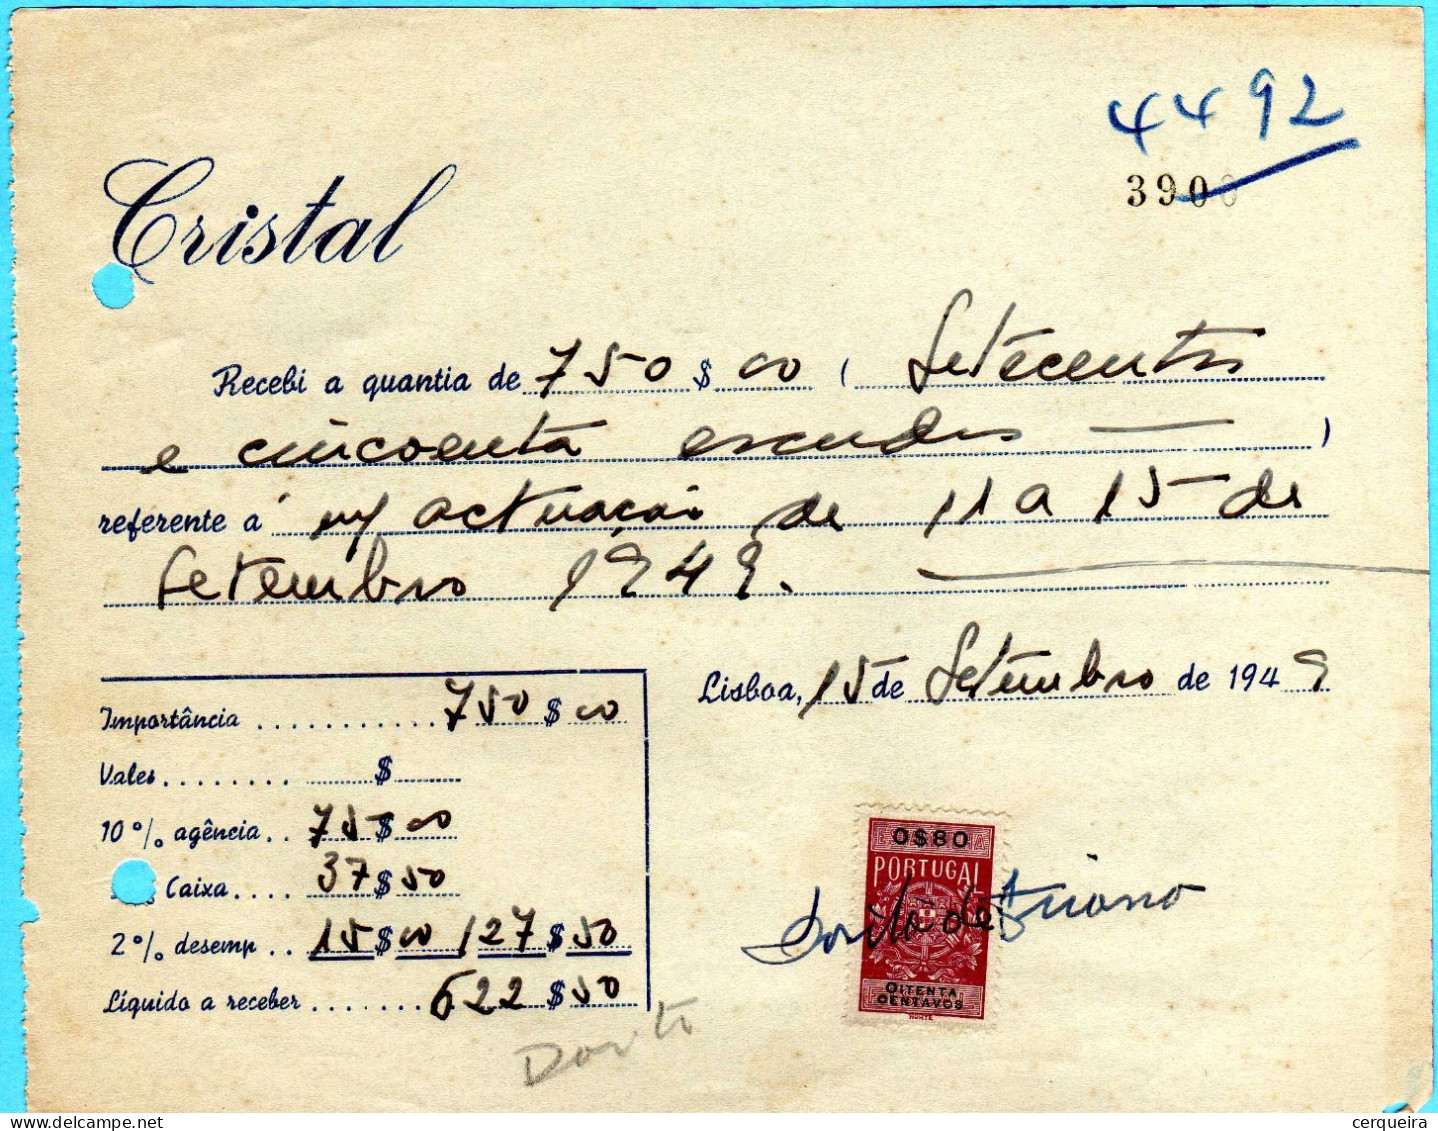 4492
3900
Cristal
Recebi a quantia de 750 $ 00 ( Setecentos
e cincoenta escudos — )
referente a m/ actuação de 11 a 15 de
Setembro 1949.
Lisboa, 15 de Setembro de 1949
Importância ........... 750 $ 00
Vales ........ $
10% agência .. 75 $ 00
Caixa .... 37 $ 50
2% desemp .. 15 $ 00 127 $ 50
Líquido a receber ....... 622 $ 50
0$80
PORTUGAL
OITENTA
CENTAVOS
NORTE
cerqueira